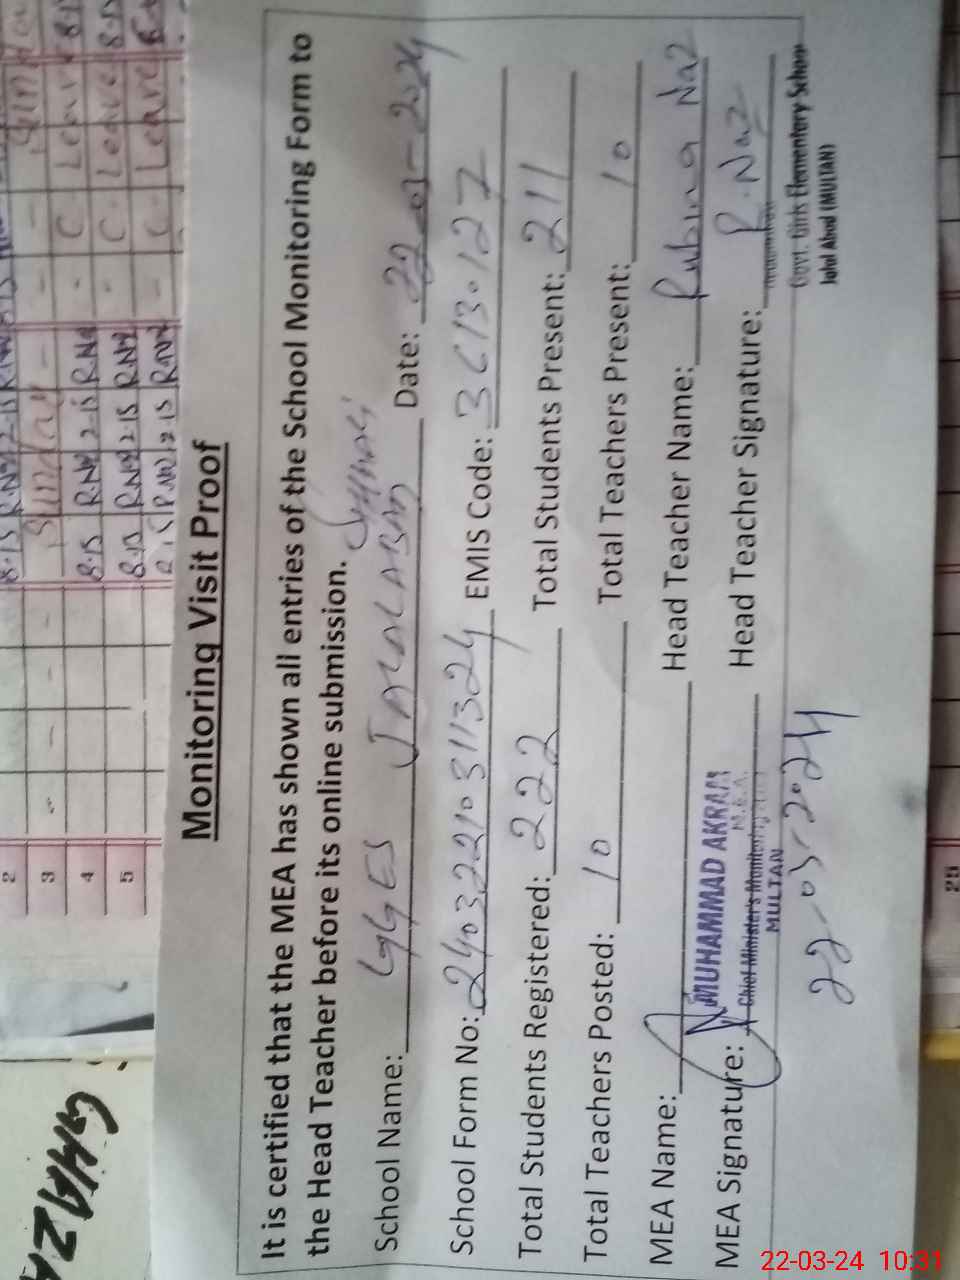 Monitoring Visit Proof
It is certified that the MEA has shown all entries of the School Monitoring Form to
the Head Teacher before its online submission.
School Name: GGES JALALABAD Date: 22-03-2024
School Form No: 240322103311324 EMIS Code: 36130127
Total Students Registered: 222 Total Students Present: 211
Total Teachers Posted: 10 Total Teachers Present: 10
MEA Name: Head Teacher Name: Rubina Naz
MUHAMMAD AKRAM
M.E.A.
MEA Signature: Chief Minister's Monitoring Head Teacher Signature: R.Naz
MULTAN
Govt. Girls Elementery School
Jalal Abad (MULTAN)
22-03-2024
2
3 Sunday
4 8-15 R.Naz 2-15 R.Naz - C - Leave
5 8-15 R.Naz 2-15 R.Naz - C - Leave
R.Naz 2-15 R.Naz - C - Leave
25
GHAZ
22-03-24 10:31